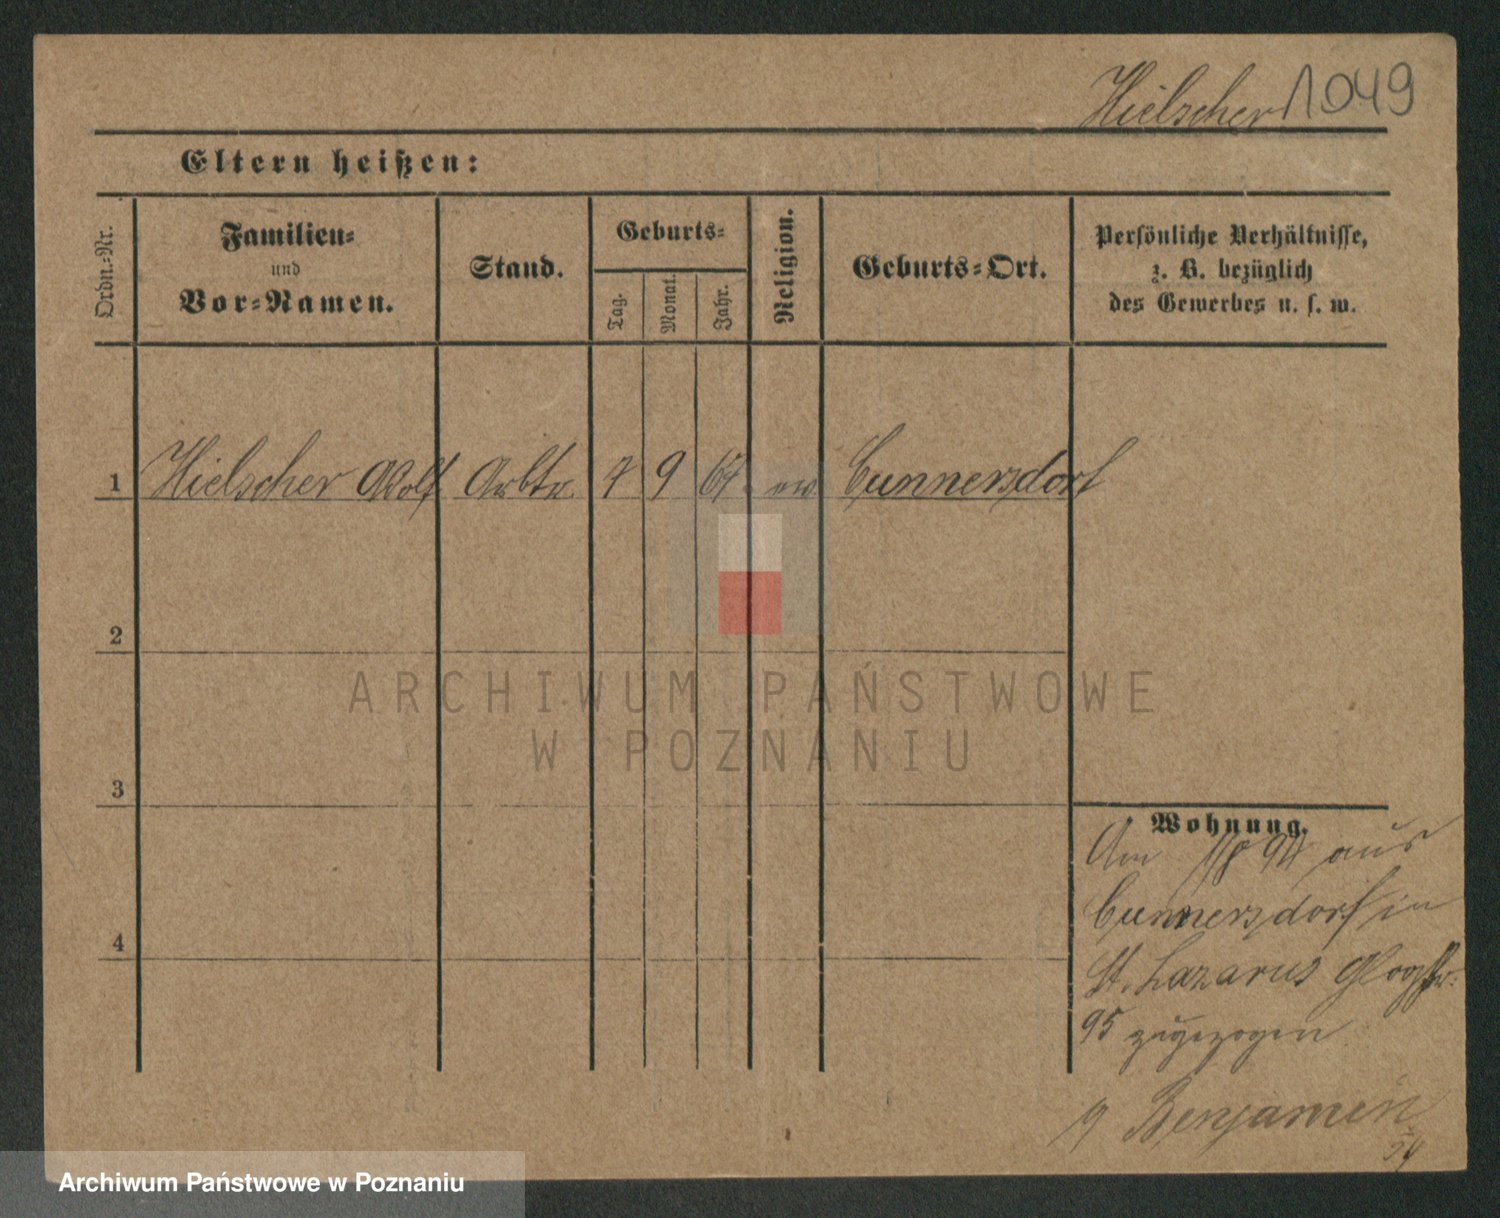 Hielscher 1049
Eltern heißen:
Ordn.-Nr.
Familien-
und
Vor-Namen.
Stand.
Geburts-
Tag.
Monat.
Jahr.
Religion.
Geburts-Ort.
Persönliche Verhältnisse,
z. B. bezüglich
des Gewerbes u. s. w.
1 Hielscher Adolf Arbtr. 7 9 67 ev. Cunnersdorf
2
3
4
ARCHIWUM PAŃSTWOWE
W POZNANIU
Wohnung.
Am 94 aus
Cunnersdorf in
St. Lazarus Glogstr.
95 zugezogen
Benjamin
Archiwum Państwowe w Poznaniu